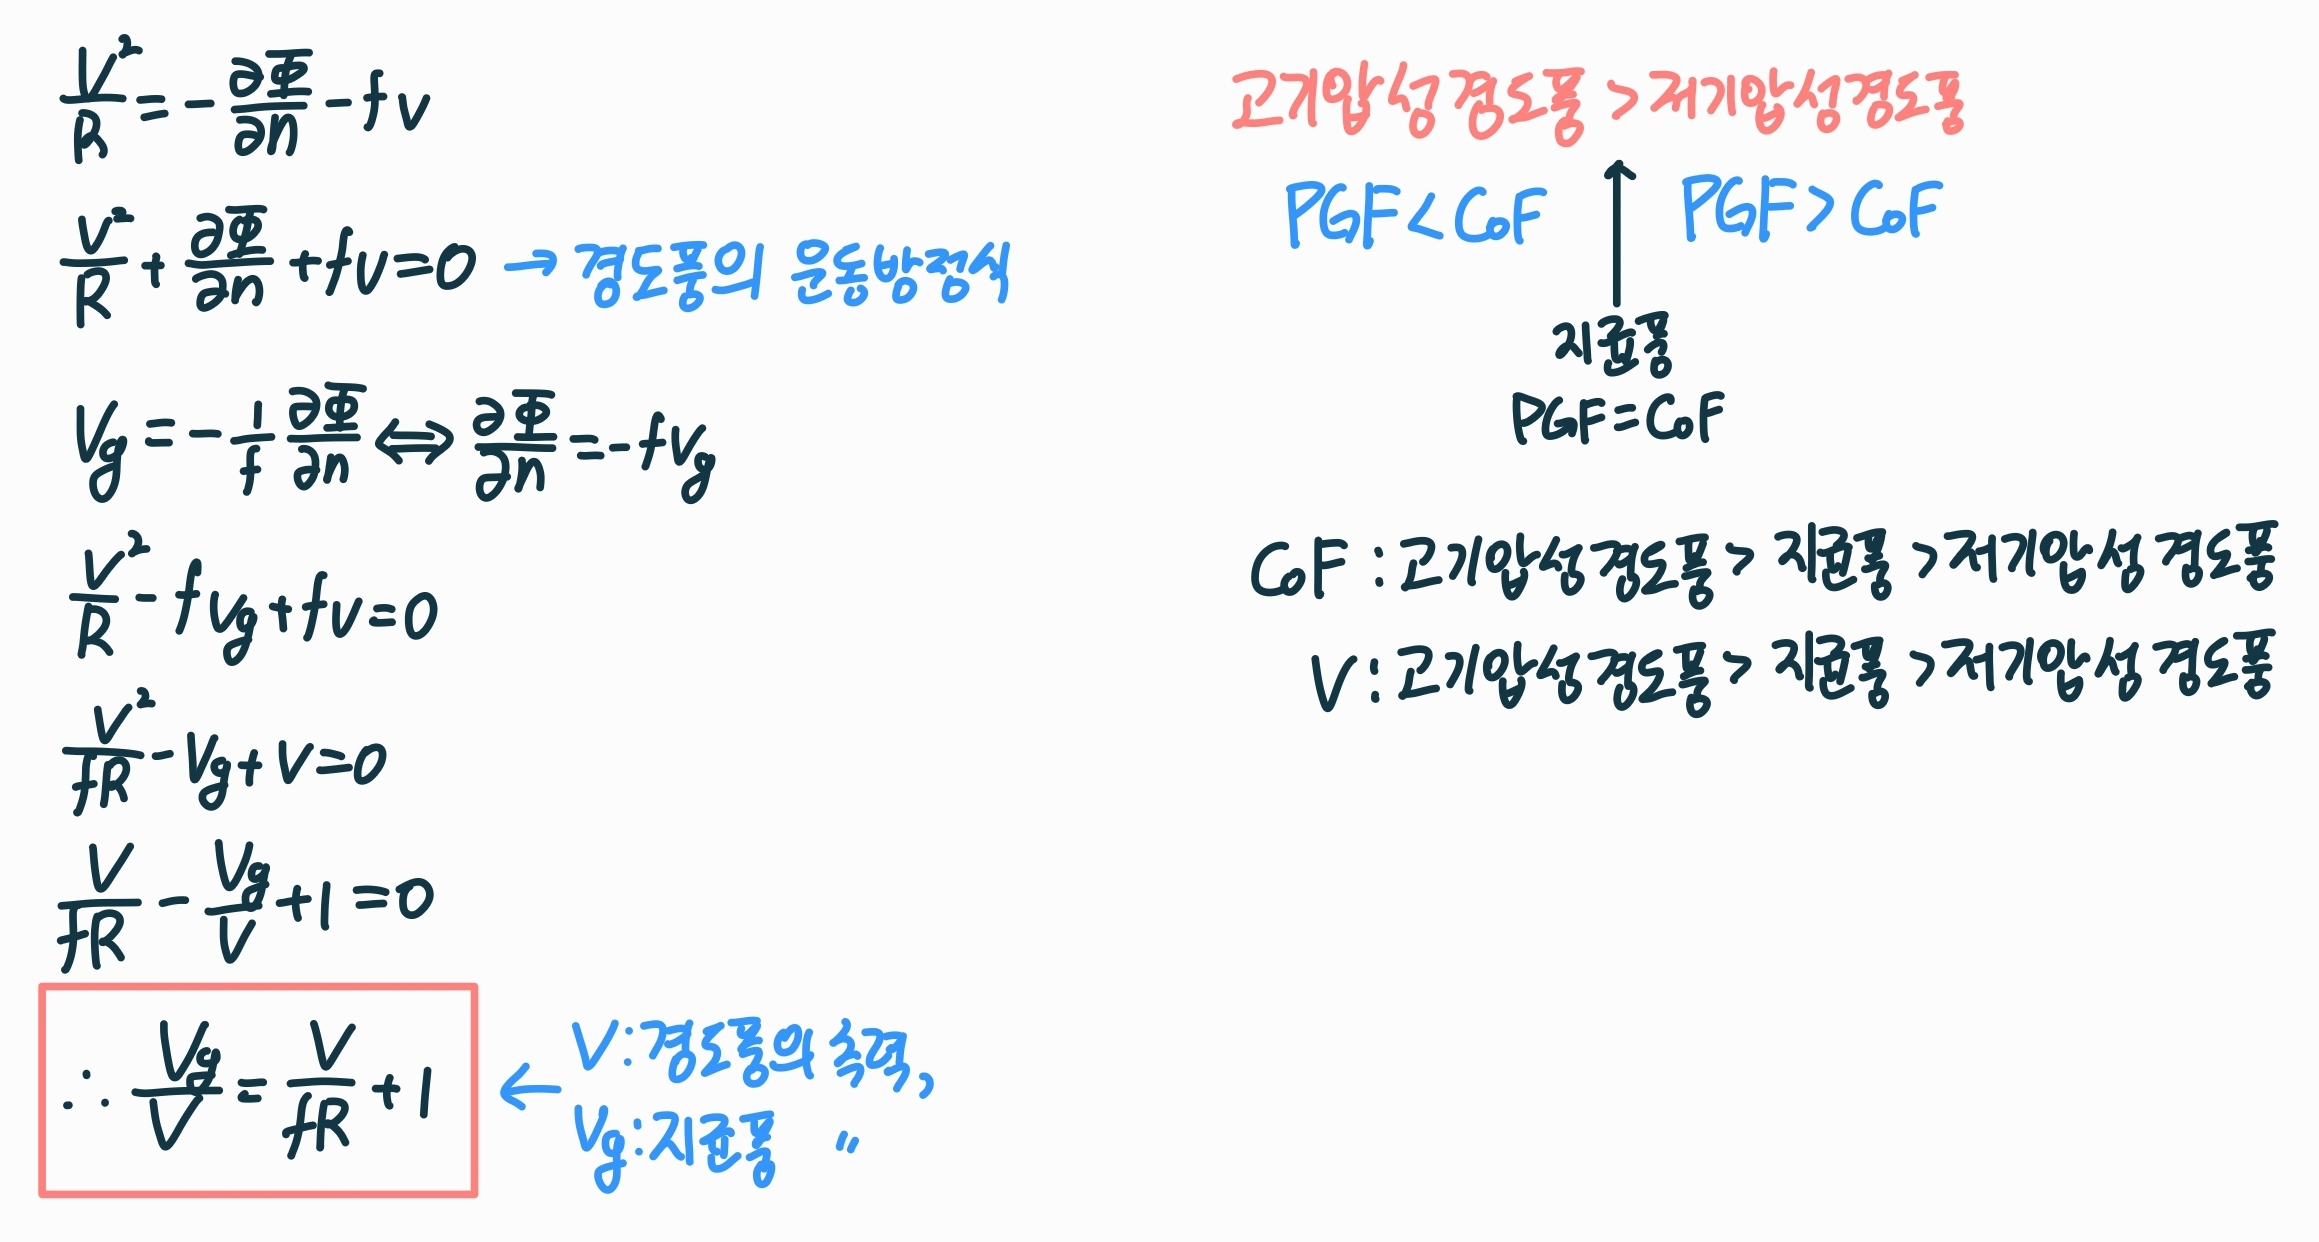 V²/R = - ∂Φ/∂n - fv
V²/R + ∂Φ/∂n + fv = 0 → 경도풍의 운동방정식
Vg = - 1/f ∂Φ/∂n ⟺ ∂Φ/∂n = - fVg
V²/R - fVg + fv = 0
V²/fR - Vg + V = 0
V/fR - Vg/V + 1 = 0
∴ Vg/V = V/fR + 1
← V : 경도풍의 속력,
Vg : 지균풍 〃
고기압성 경도풍 > 저기압성 경도풍
PGF < CoF ↑ PGF > CoF
지균풍
PGF = CoF
CoF : 고기압성 경도풍 > 지균풍 > 저기압성 경도풍
V : 고기압성 경도풍 > 지균풍 > 저기압성 경도풍